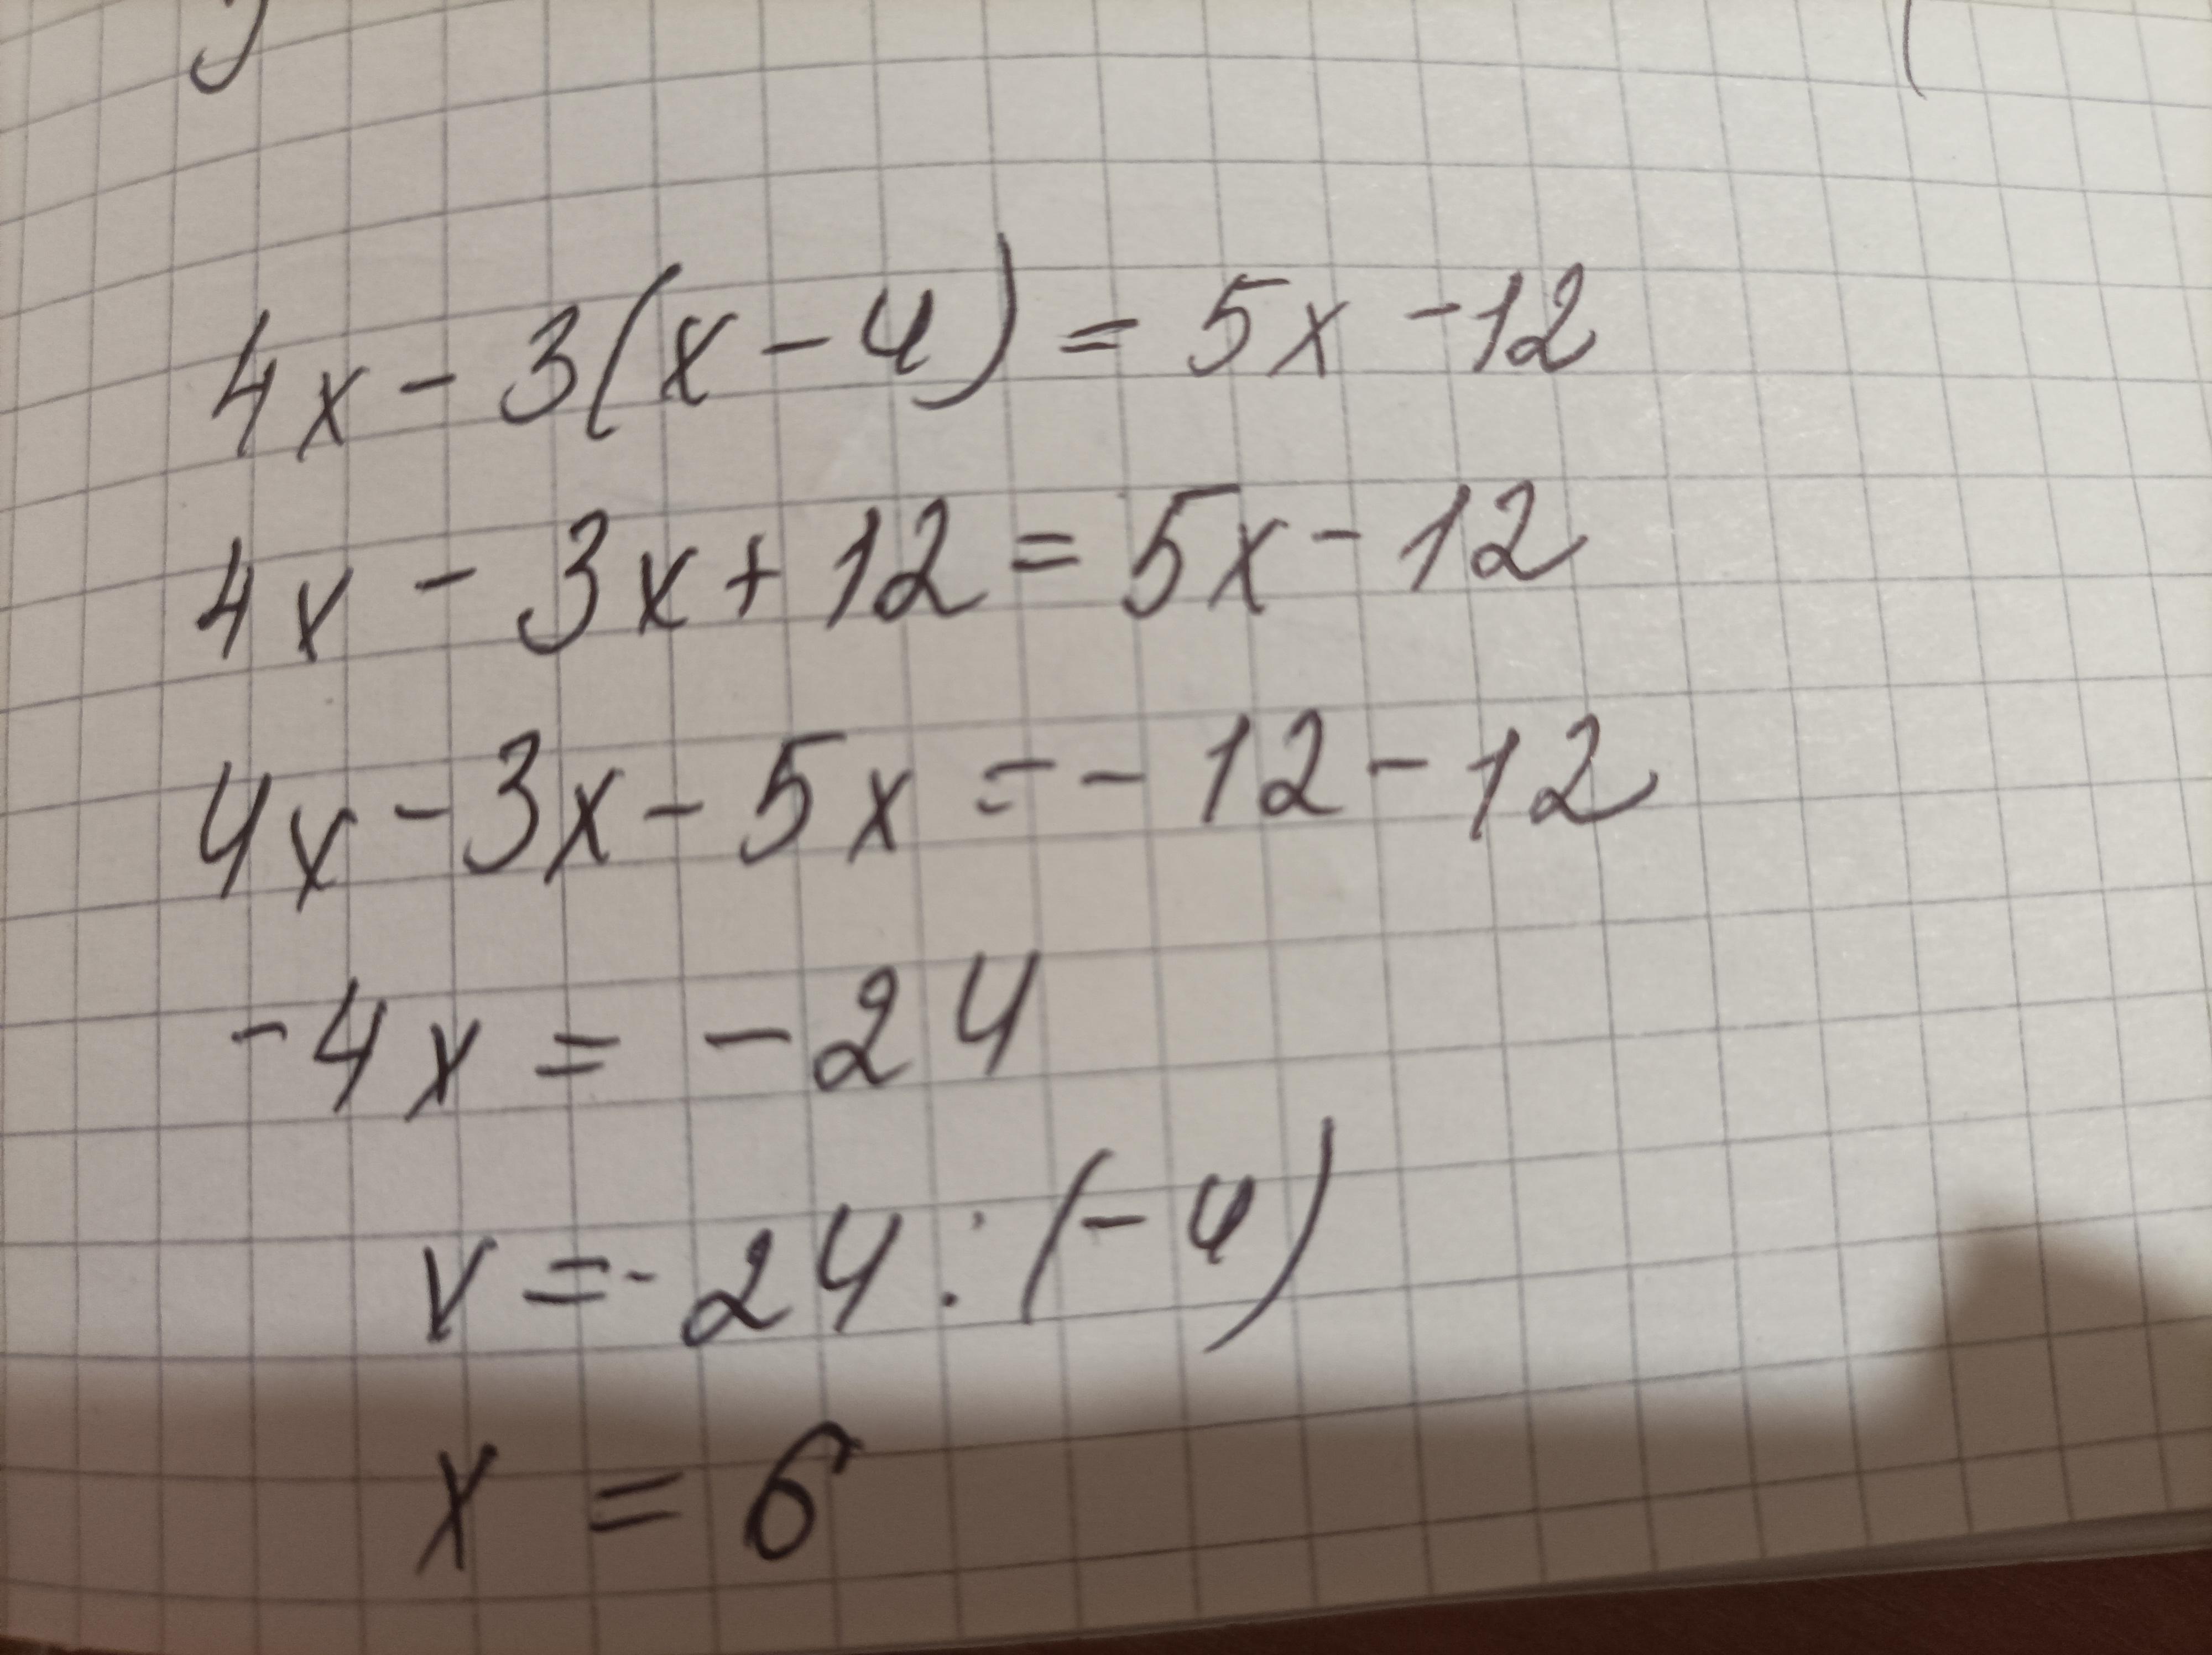 4x - 3(x - 4) = 5x - 12
4x - 3x + 12 = 5x - 12
4x - 3x - 5x = - 12 - 12
-4x = - 24
x = - 24 : (- 4)
x = 6